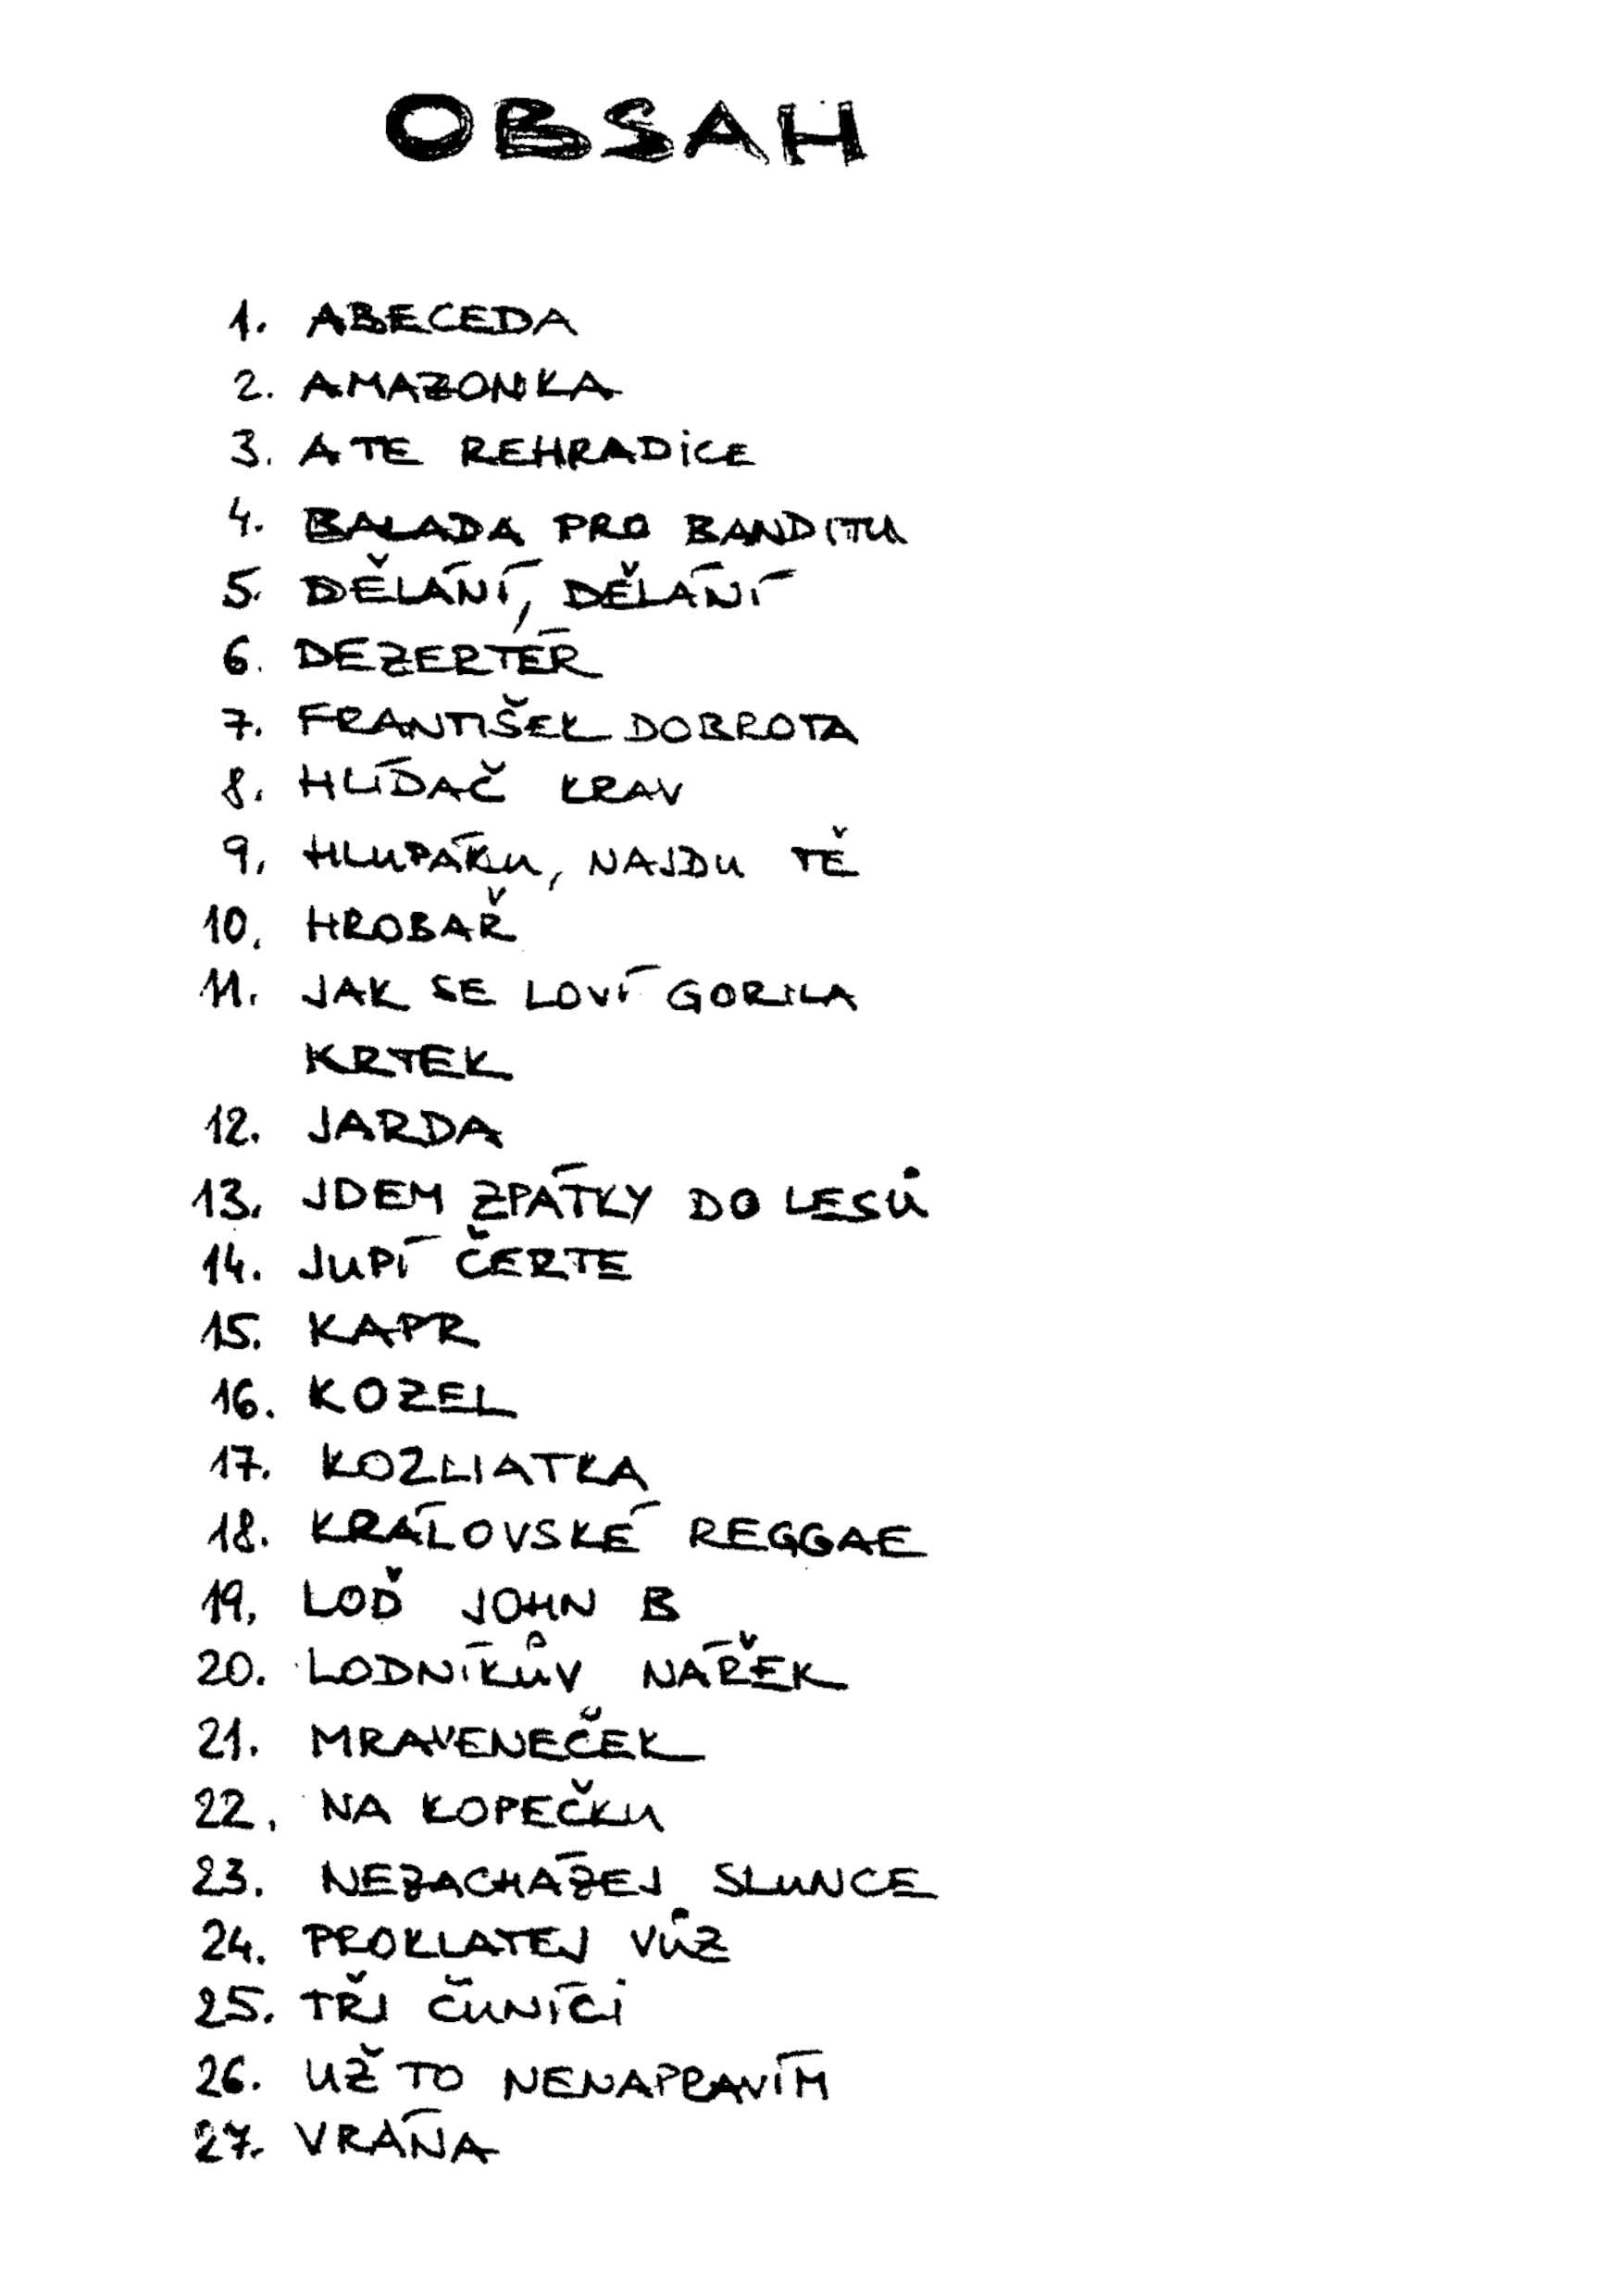 OBSAH
1. ABECEDA
2. AMAZONKA
3. A TE REHRADICE
4. BALADA PRO BANDITU
5. DĚLÁNÍ, DĚLÁNÍ
6. DEZERTÉR
7. FRANTIŠEK DOBROTA
8. HLÍDAČ KRAV
9. HLUPÁKU, NAJDU TĚ
10. HROBAŘ
11. JAK SE LOVÍ GORILA
KRTEK
12. JARDA
13. JDEM ZPÁTKY DO LESŮ
14. JUPÍ ČERTE
15. KAPR
16. KOZEL
17. KOZLIATKA
18. KRÁLOVSKÉ REGGAE
19. LOĎ JOHN B
20. LODNÍKŮV NÁŘEK
21. MRAVENEČEK
22. NA KOPEČKU
23. NEZACHÁZEJ SLUNCE
24. PROKLATEJ VŮZ
25. TŘI ČUNÍCI
26. UŽ TO NENAPRAVÍM
27. VRÁNA